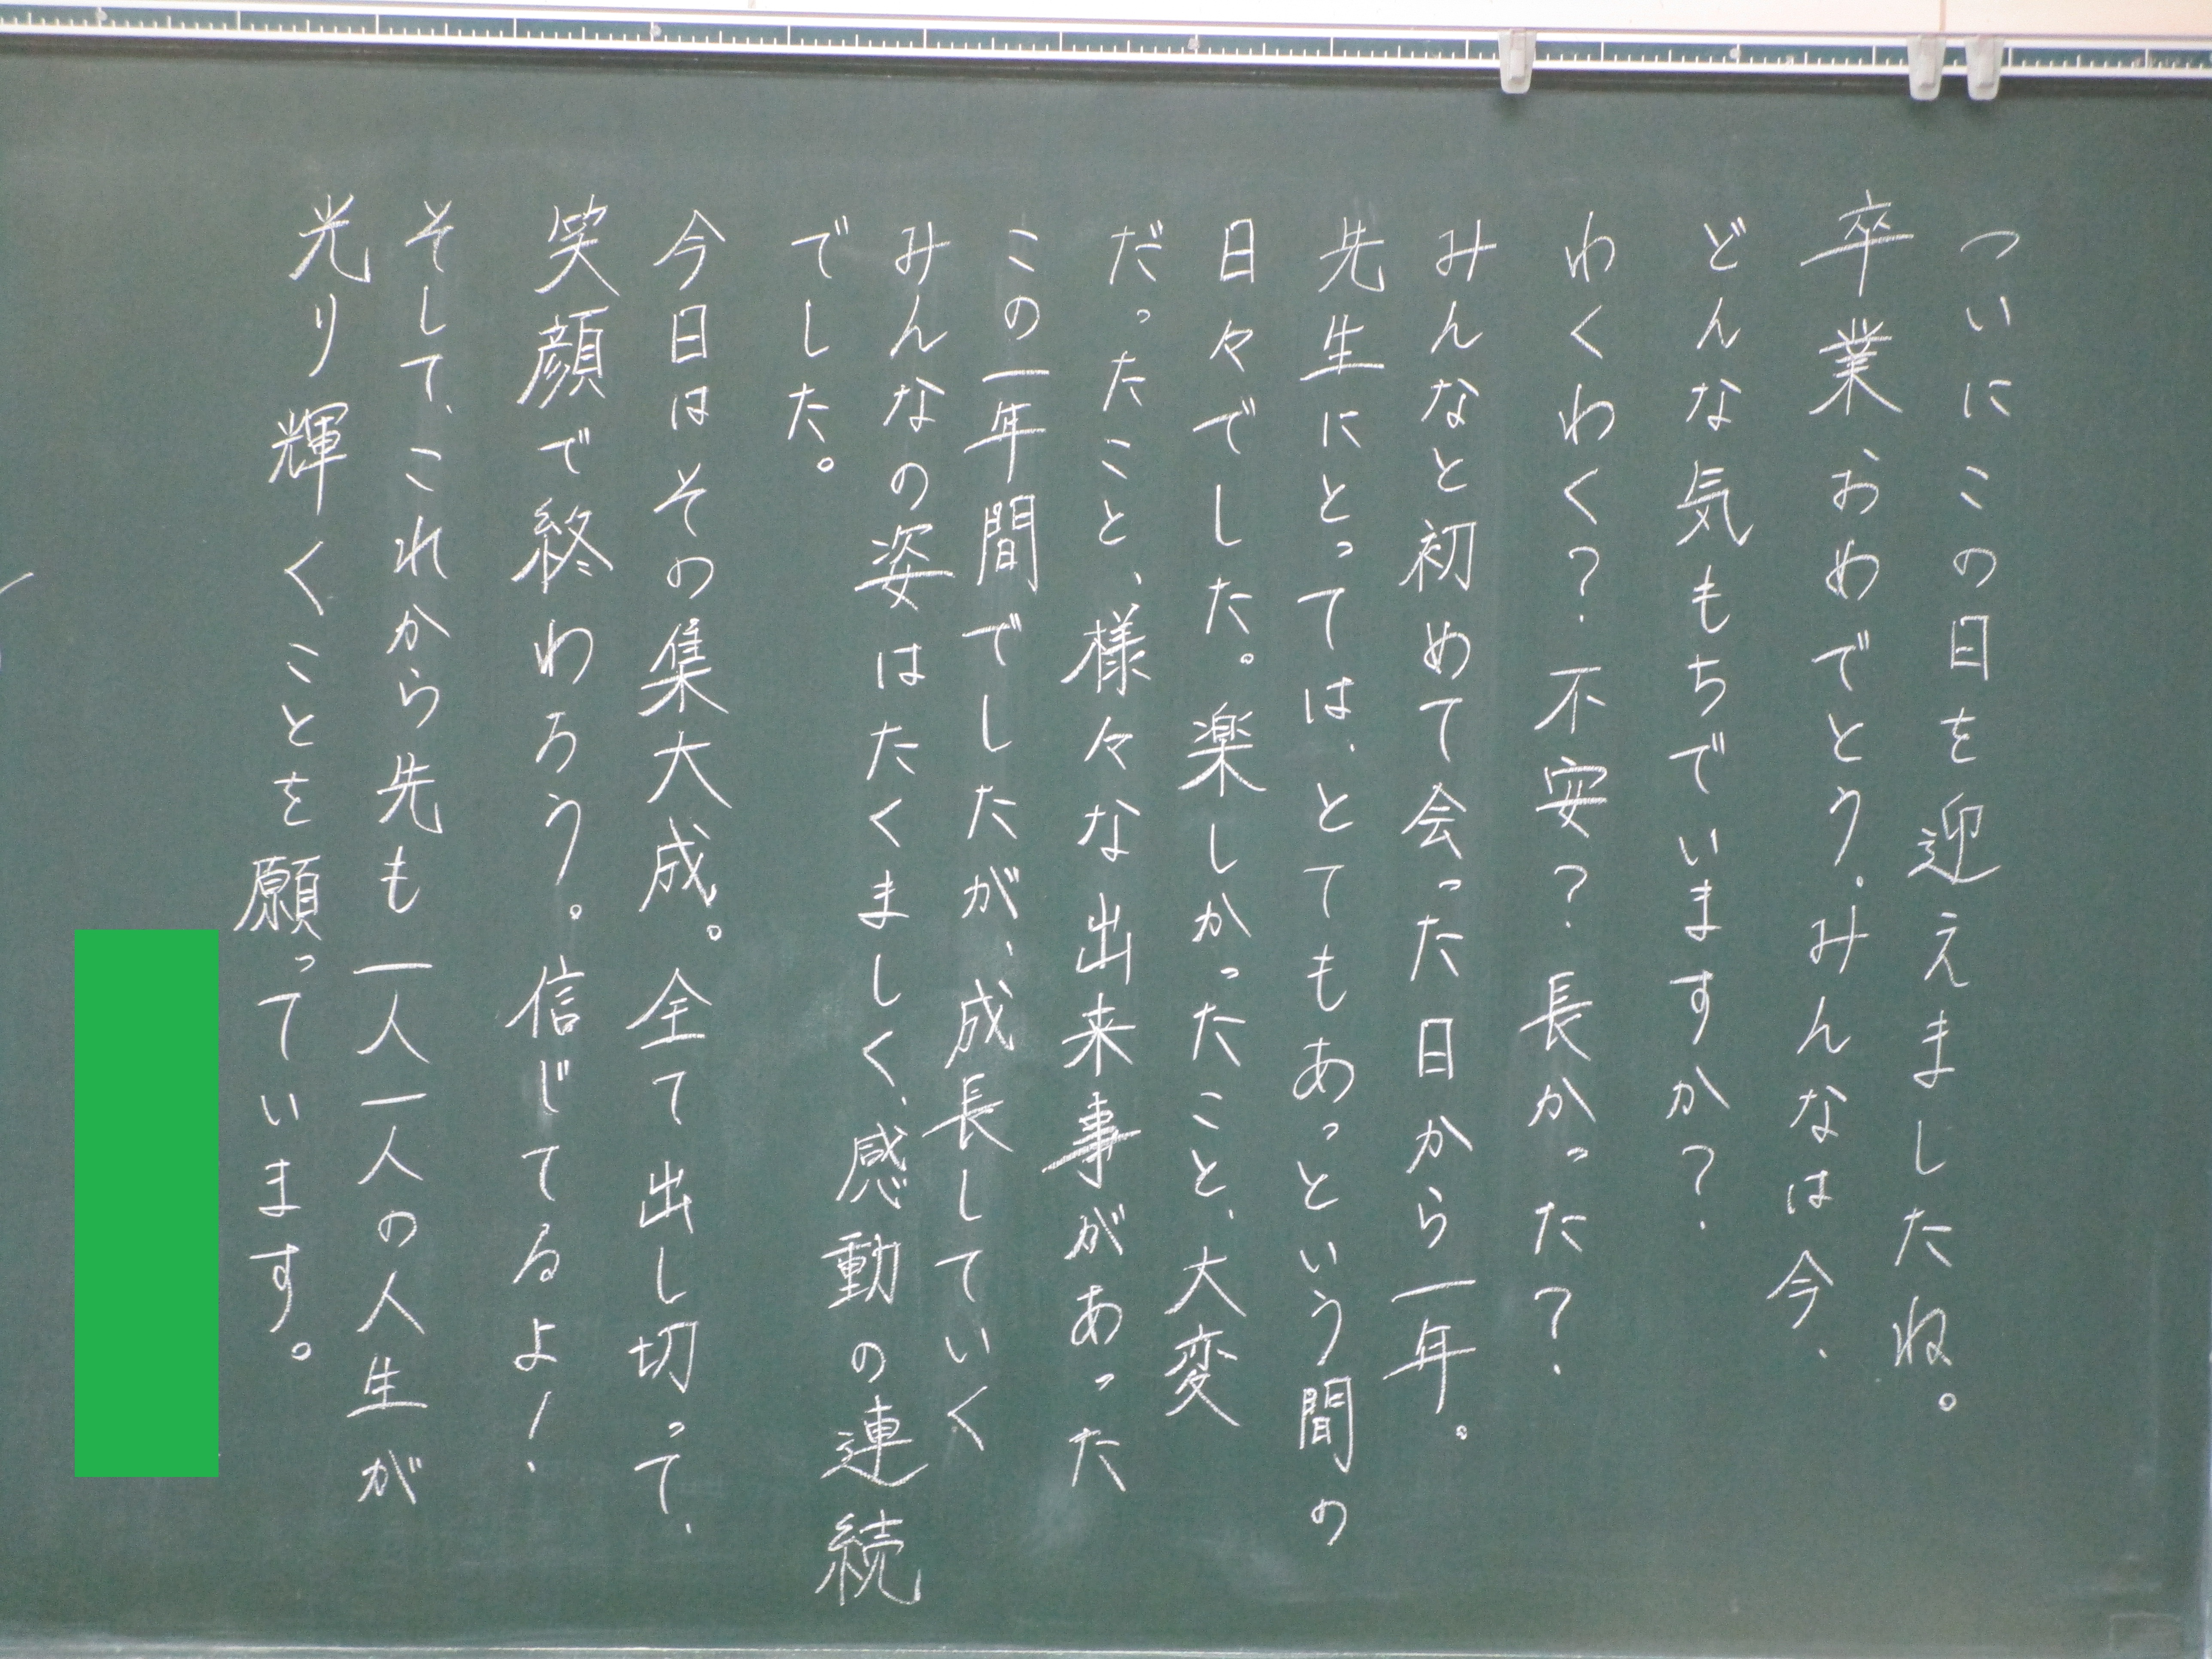 ついにこの日を迎えましたね。
卒業おめでとう。みんなは今、
どんな気もちでいますか？
わくわく？不安？長かった？
みんなと初めて会った日から一年。
先生にとっては、とてもあっという間の
日々でした。楽しかったこと、大変
だったこと、様々な出来事があった
この一年間でしたが、成長していく
みんなの姿はたくましく、感動の連続
でした。
今日はその集大成。全て出し切って、
笑顔で終わろう。信じてるよ！
そして、これから先も一人一人の人生が
光り輝くことを願っています。